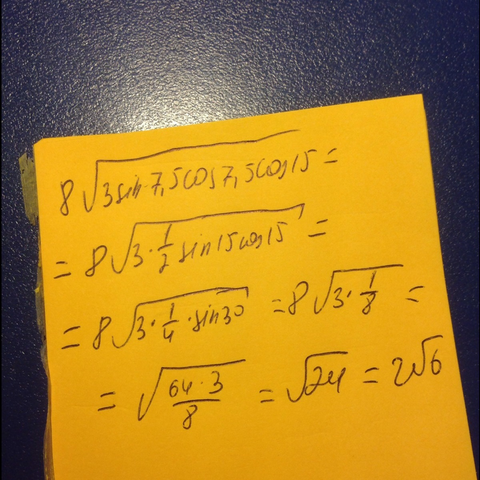 8√(3sin 7,5cos7,5cos15) =
= 8√(3·1/2 sin15cos15) =
= 8√(3·1/4·sin30) = 8√(3·1/8) =
= √(64·3/8) = √24 = 2√6